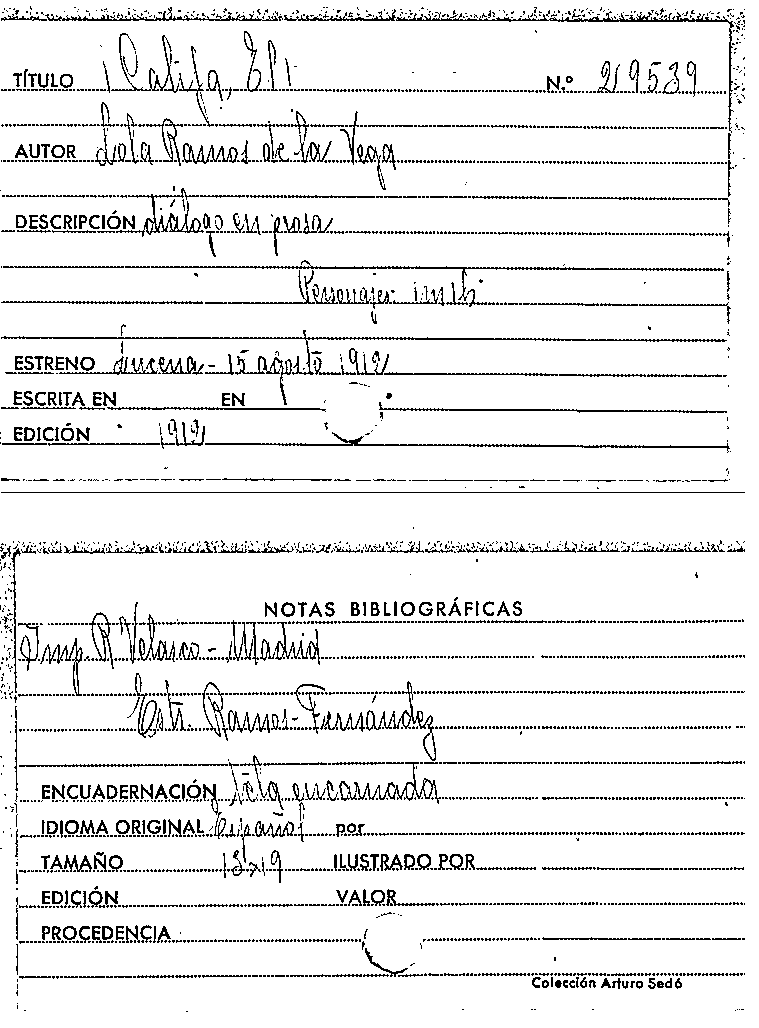 TÍTULO ¡Califa, El!
N.º 219539
AUTOR Lola Ramos de la Vega
DESCRIPCIÓN diálogo en prosa
Personajes
ESTRENO Lucena - 15 agosto 1912
ESCRITA EN EN
EDICIÓN 1912
NOTAS BIBLIOGRÁFICAS
Imp. R Velasco - Madrid
Estr. Ramos-Fernández
ENCUADERNACIÓN tela encarnada
IDIOMA ORIGINAL Español por
TAMAÑO 13x19 ILUSTRADO POR
EDICIÓN VALOR
PROCEDENCIA
Colección Arturo Sedó